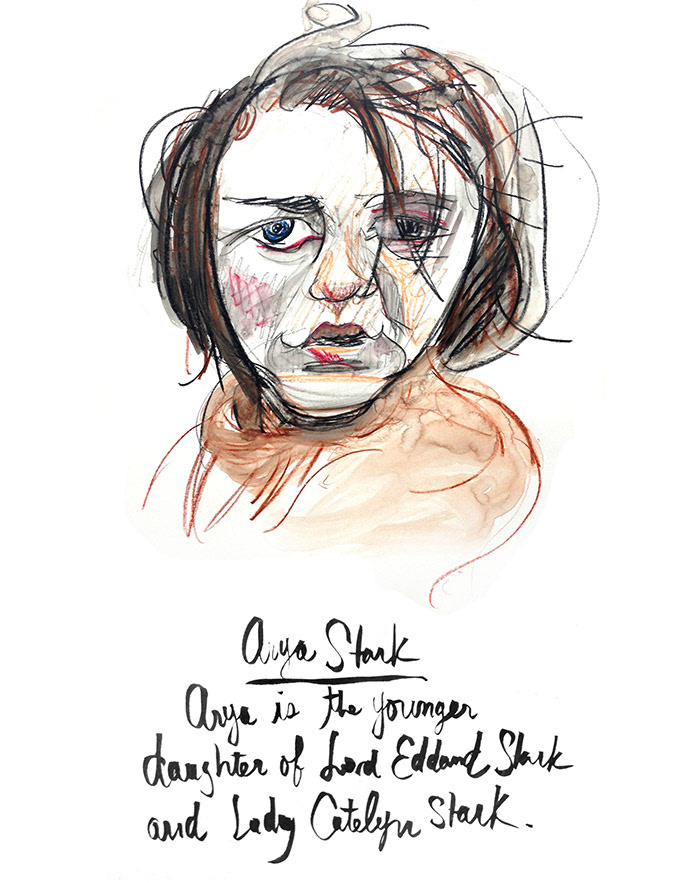 Arya Stark
Arya is the younger
daughter of Lord Eddand Stark
and Lady Catelyn Stark.